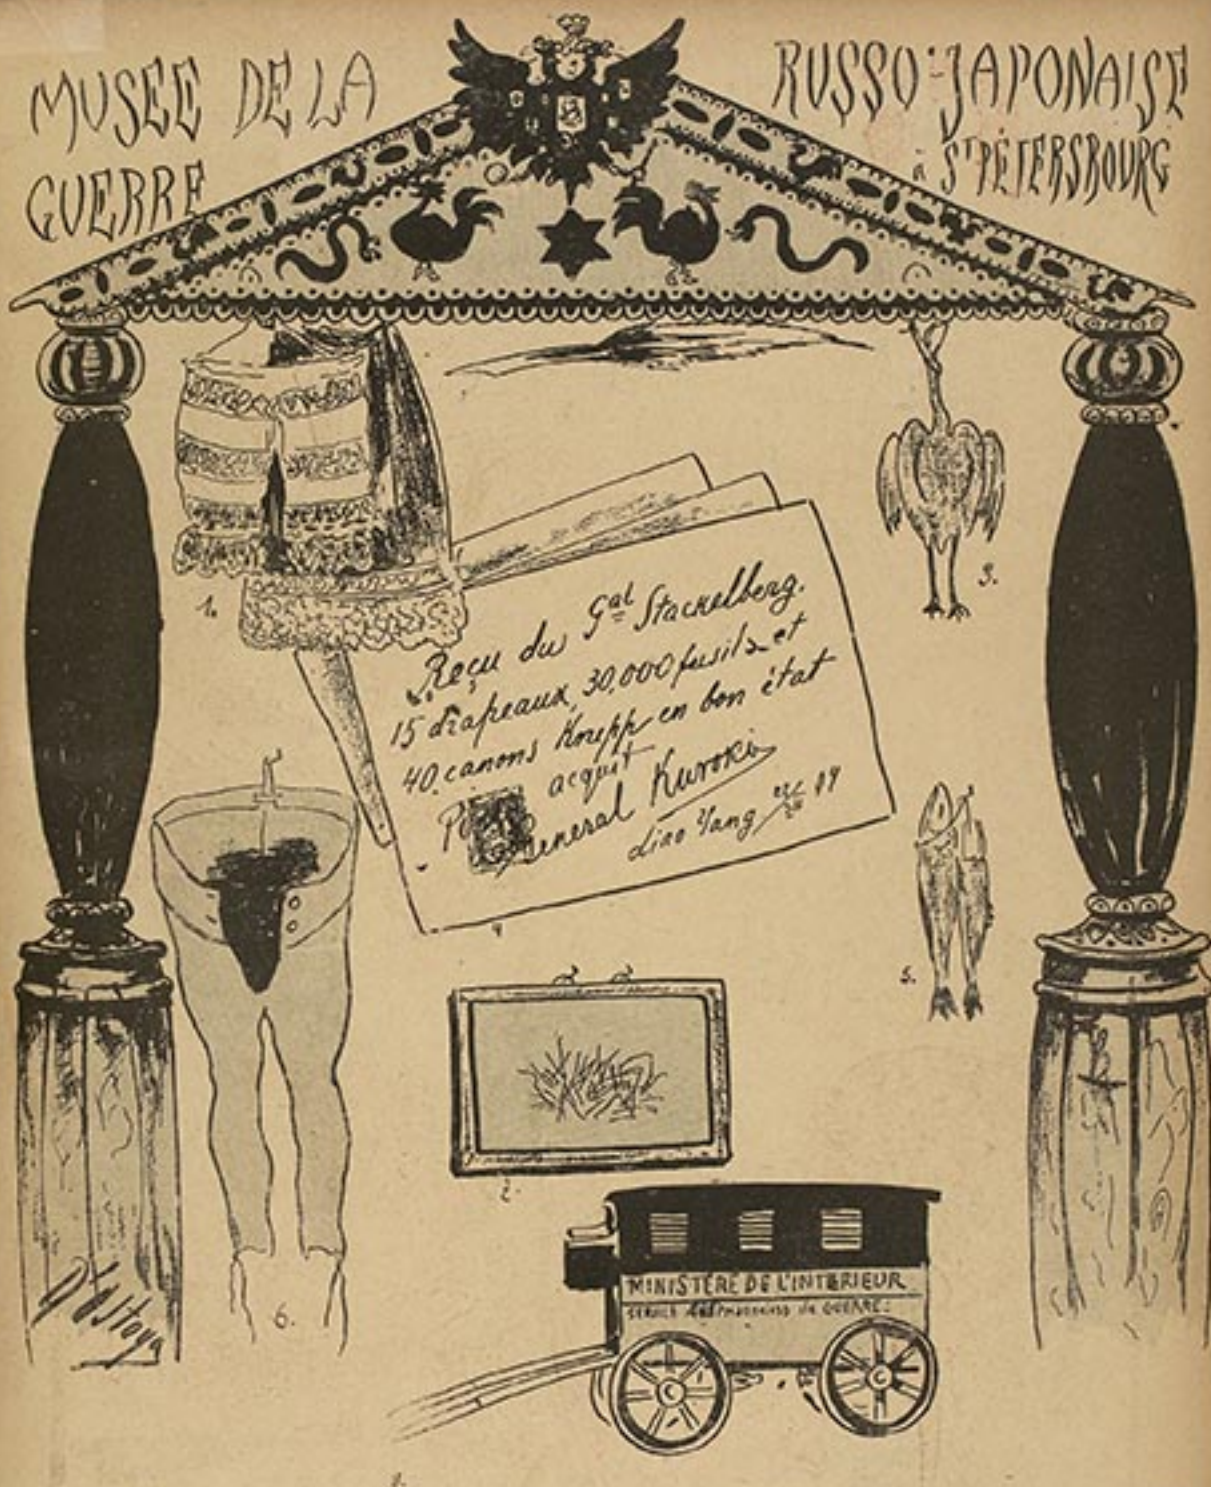 MUSEE DE LA
GUERRE
RUSSO-JAPONAISE
à St PÉTERSBOURG
1.
3.
Reçu du Gal Stackelberg.
15 drapeaux, 30,000 fusils et
40 canons Krupp en bon état
acquit
General Kuroki
Liao Yang 04
4
5.
2.
6.
MINISTÈRE DE L'INTERIEUR
SERVICE de GUERRE: